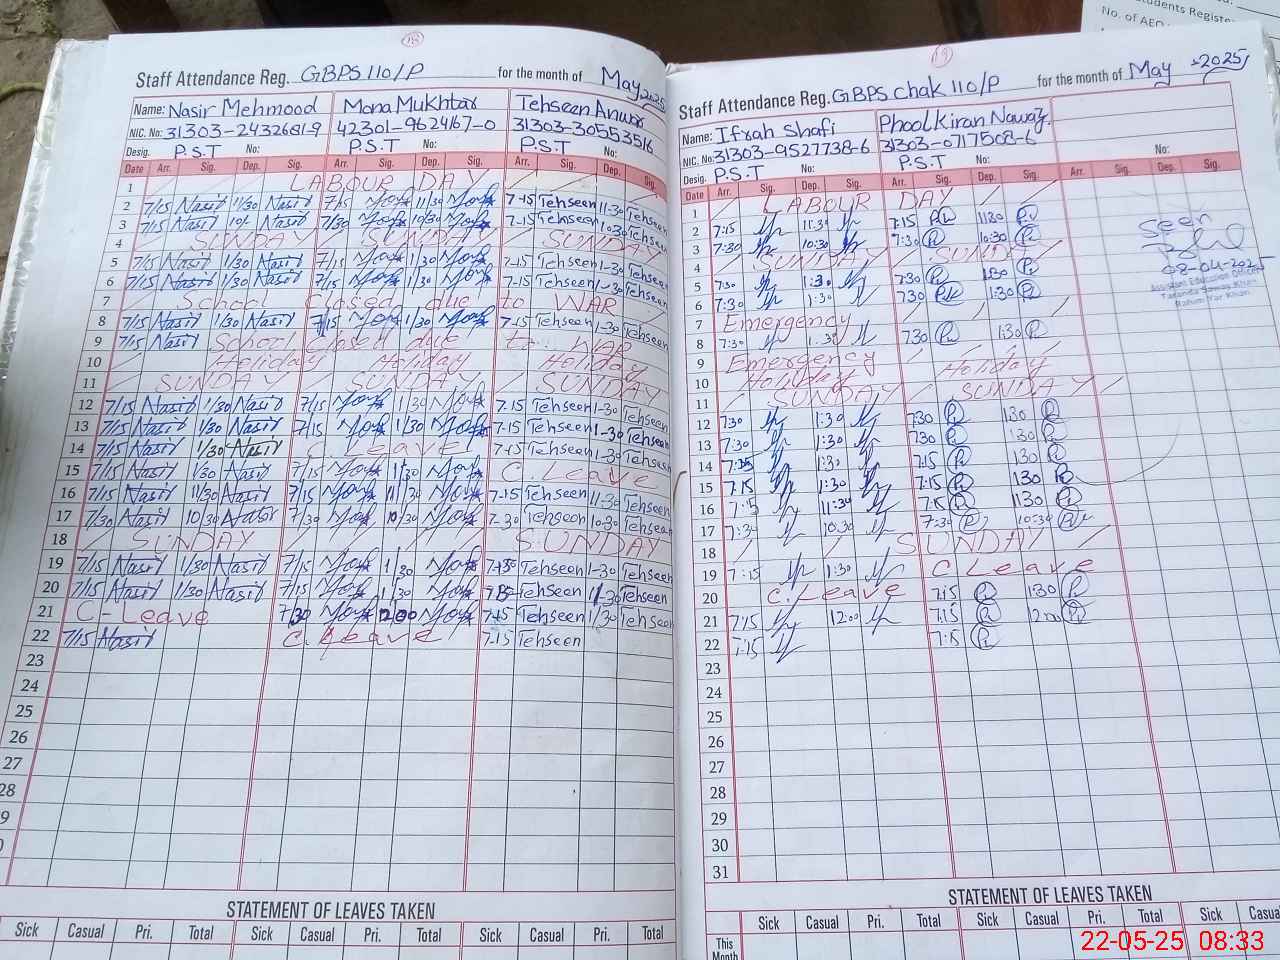 Students Registe
No. of AEO
18
Staff Attendance Reg. GBPS 110/P for the month of May 2025
Name: Nasir Mehmood Mona Mukhtar Tehseen Anwar
NIC. No: 31303-2432681-9 42301-9624167-0 31303-3055351-6
Desig. P.S.T No: P.S.T No: P.S.T No:
Date Arr. Sig. Dep. Sig. Arr. Sig. Dep. Sig. Arr. Sig. Dep. Sig.
1 LABOUR DAY
2 7/15 Nasir 11/30 Nasir 7/15 11/30 7-15 Tehseen 11-30 Tehseen
3 7/15 Nasir 10/- Nasir 7/30 10/30 7-15 Tehseen 10-30 Tehseen
4 SUNDAY SUNDAY SUNDAY
5 7/15 Nasir 1/30 Nasir 7/15 1/30 7-15 Tehseen 1-30 Tehseen
6 7/15 Nasir 1/30 Nasir 7/15 1/30 7-15 Tehseen 1-30 Tehseen
7 School closed due to WAR
8 7/15 Nasir 1/30 Nasir 7/15 1/30 7-15 Tehseen 1-30 Tehseen
9 7/15 Nasir School closed due to WAR
10 Holiday Holiday Holiday
11 SUNDAY SUNDAY SUNDAY
12 7/15 Nasir 1/30 Nasir 7/15 1/30 7-15 Tehseen 1-30 Tehseen
13 7/15 Nasir 1/30 Nasir 7/15 1/30 7-15 Tehseen 1-30 Tehseen
14 7/15 Nasir 1/30 Nasir C. Leave 7-15 Tehseen 1-30 Tehseen
15 7/15 Nasir 1/30 Nasir 7/15 1/30 C. Leave
16 7/15 Nasir 11/30 Nasir 7/15 11/30 7-15 Tehseen 11-30 Tehseen
17 7/30 Nasir 10/30 Nasir 7/30 10/30 7-30 Tehseen 10-30 Tehseen
18 SUNDAY SUNDAY
19 7/15 Nasir 1/30 Nasir 7/15 1/30 Tehseen 1-30 Tehseen
20 7/15 Nasir 1/30 Nasir 7/15 1/30 Tehseen Tehseen
21 C-Leave 7/30 Tehseen 1/30 Tehseen
22 7/15 Nasir C. Leave 7-15 Tehseen
23
24
25
26
27
28
STATEMENT OF LEAVES TAKEN
Sick Casual Pri. Total Sick Casual Pri. Total Sick Casual Pri. Total
19
Staff Attendance Reg. GBPS chak 110/P for the month of May -2025
Name: Ifrah Shafi Phool Kiran Nawaz
NIC. No: 31303-9527738-6 31303-0717508-6
Desig. P.S.T No: P.S.T No: No:
Date Arr. Sig. Dep. Sig. Arr. Sig. Dep. Sig. Arr. Sig. Dep. Sig.
1 LABOUR DAY
2 7:15 11:30 7:15 1130
3 7:30 10:30 7:30 10:30
4 SUNDAY SUNDAY
5 7:30 1:30 730 130
6 7:30 1:30 730 1:30
7 Emergency
8 7:30 1:30 730 1:30
9 Emergency
10 Holiday Holiday
11 SUNDAY SUNDAY
12 730 1:30 730 130
13 7:30 1:30 730 130
14 7:15 1:30 7:15 130
15 7:15 1:30 7:15 130
16 7:15 11:30 7:15 1130
17 7:30 10:30 7:30 10:30
18 SUNDAY
19 7:15 1:30 C Leave
20 C. Leave 7:15 1:30
21 7:15 12:00 7:15
22 7:15 7:15
23
24
25
26
27
28
29
30
31
Seen
08-04-2025
STATEMENT OF LEAVES TAKEN
Sick Casual Pri. Total Sick Casual Pri. Total Sick Casua
This Month
22-05-25 08:33